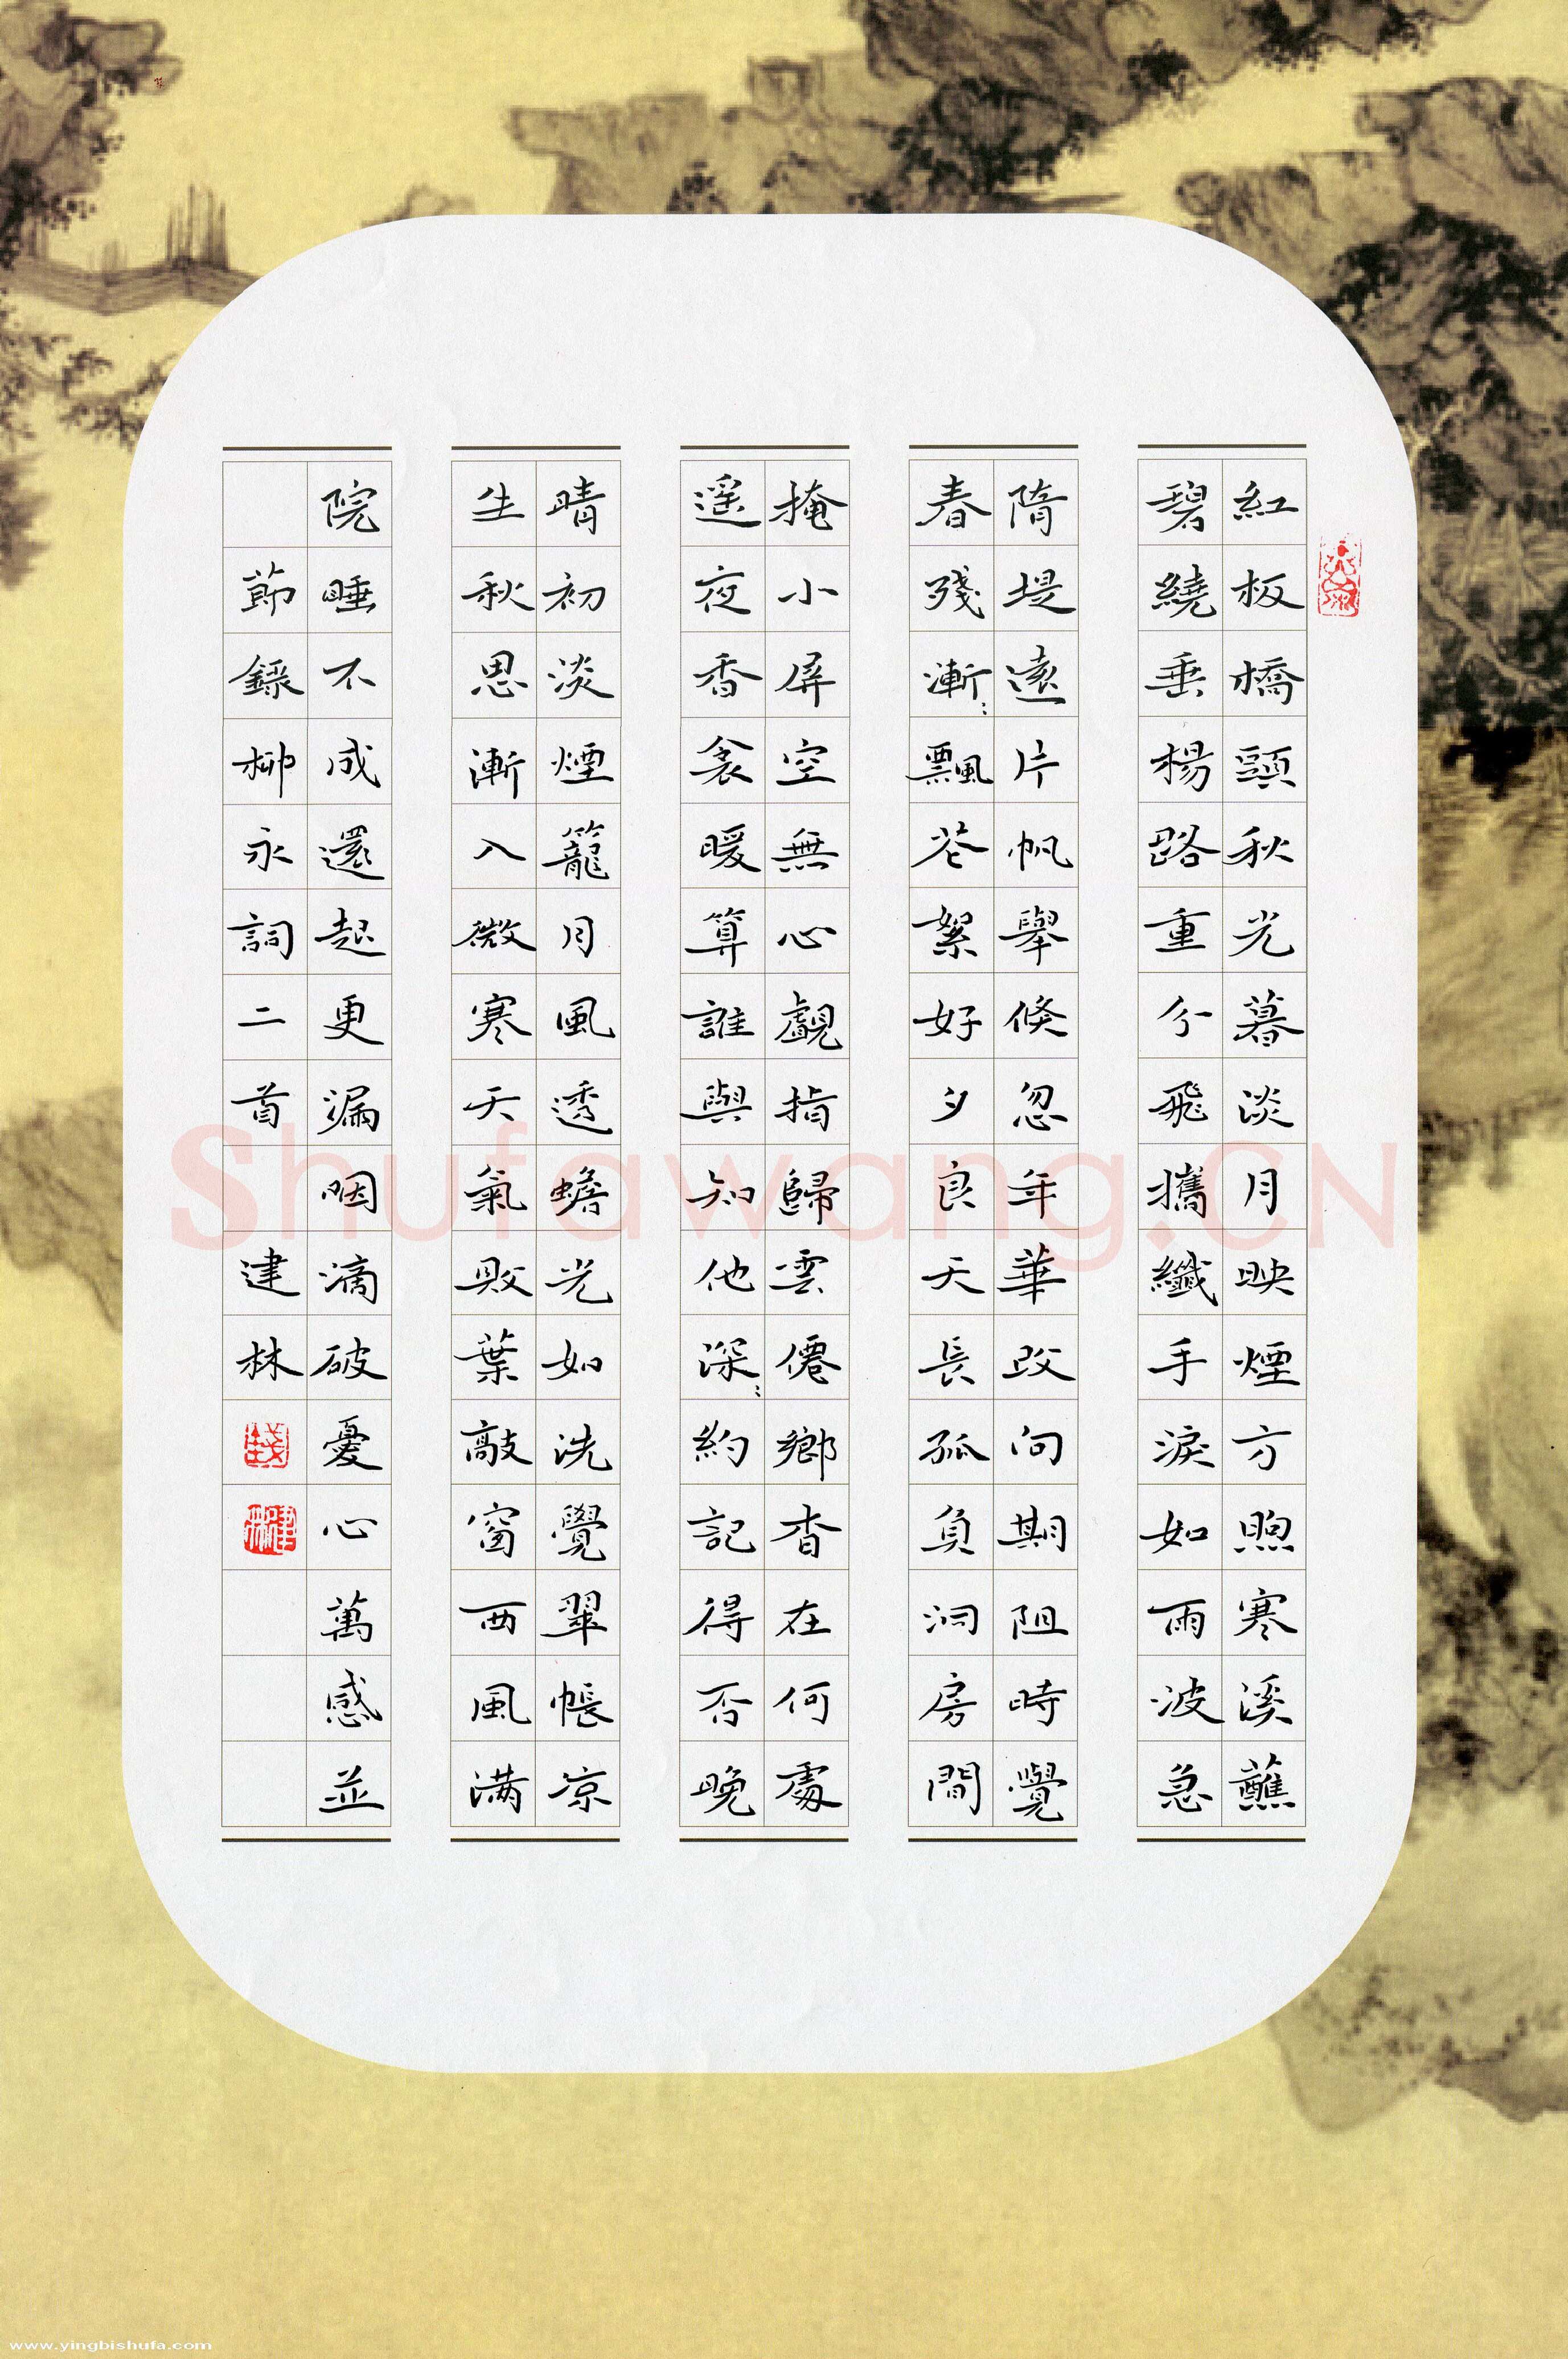 紅板橋頭秋光暮淡月映煙方煦寒溪蘸
碧繞垂楊路重分飛攜纖手淚如雨波急
隋堤遠片帆舉倏忽年華改向期阻時覺
春殘漸〻飄花絮好夕良天長孤負洞房閒
掩小屏空無心覷指歸雲僊鄉杳在何處
遥夜香衾暖算誰與知他深〻約記得否晚
晴初淡煙籠月風透蟾光如洗覺翠帳凉
生秋思漸入微寒天氣敗葉敲窗西風满
院睡不成還起更漏咽滴破憂心萬感並
節錄柳永詞二首 建林
Shufawang.CN
www.yingbishufa.com